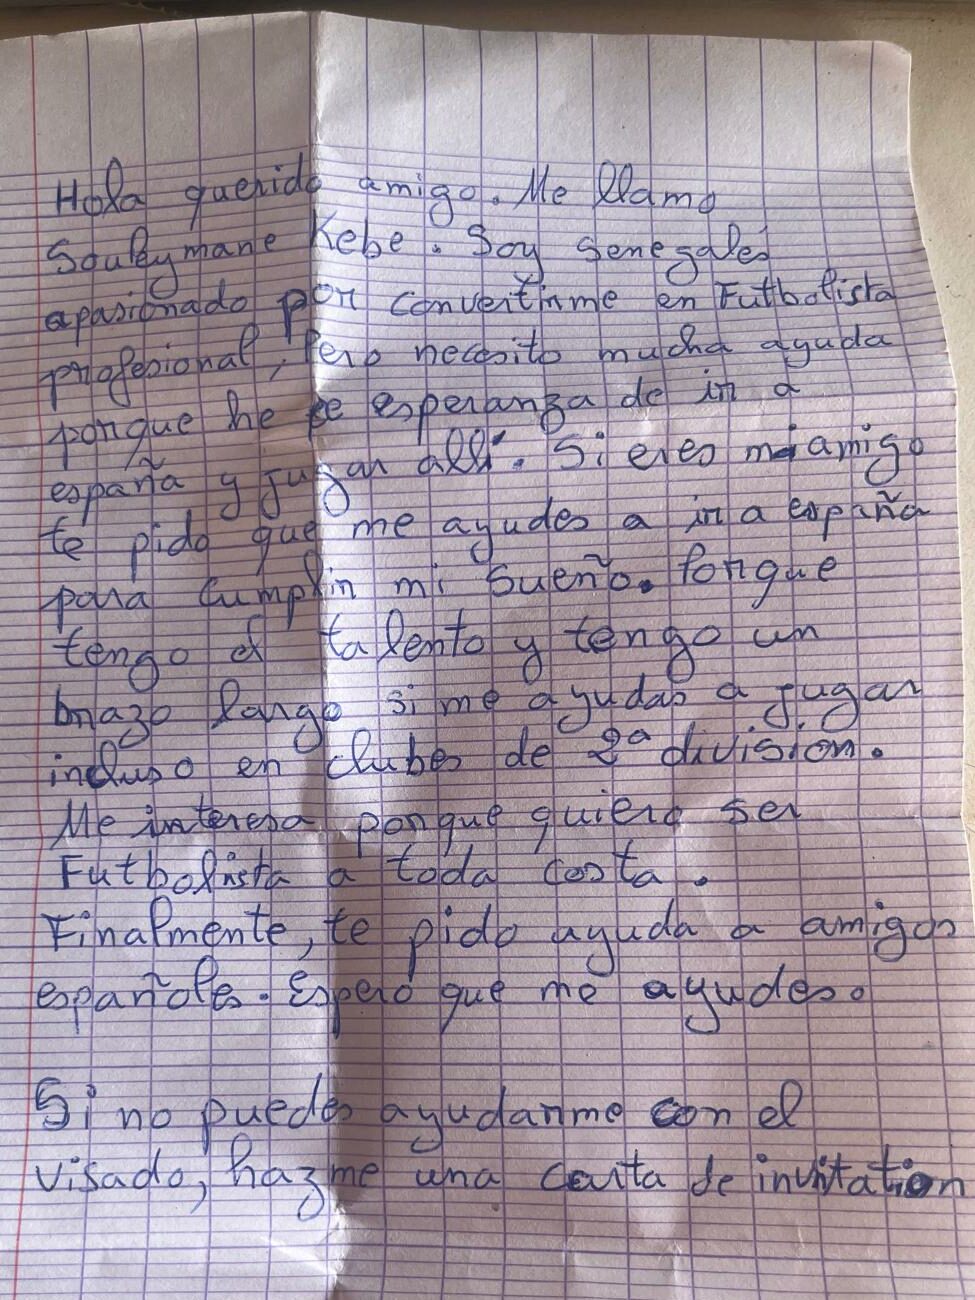 Hola querido amigo. Me llamo
Souleymane Kebe. Soy Senegalés
apasionado por convertirme en Futbolista
profesional, Pero necesito mucha ayuda
porque he esperanza de ir a
españa y jugar allí. Si eres mi amigo
te pido que me ayudes a ir a españa
para Cumplir mi Sueño. Porque
tengo el talento y tengo un
brazo largo si me ayudas a jugar
incluso en clubes de 2ª división.
Me interesa porque quiero ser
Futbolista a toda costa.
Finalmente, te pido ayuda a amigos
españoles. Espero que me ayudes.
Si no puedes ayudarme con el
visado, hazme una carta de invitation